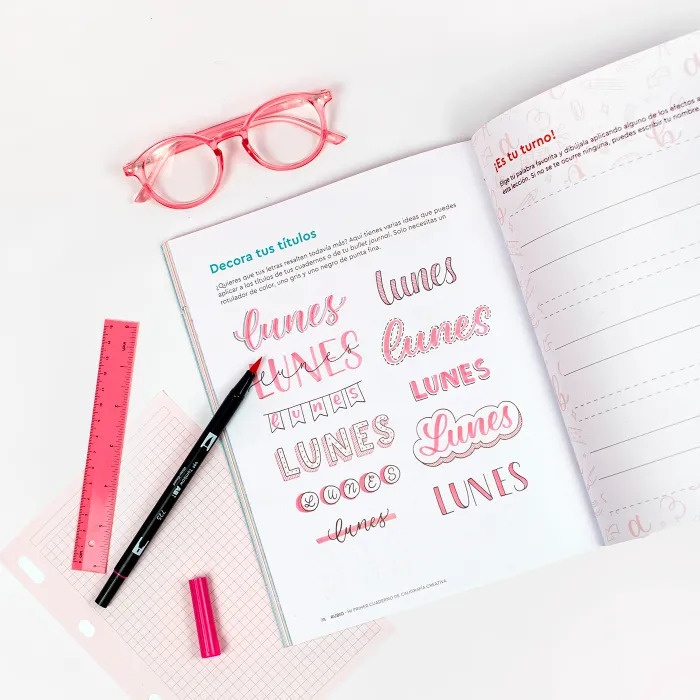 Decora tus títulos
¿Quieres que tus letras resalten todavía más? Aquí tienes varias ideas que puedes
aplicar a los títulos de tus cuadernos o de tu bullet journal. Solo necesitas un
rotulador de color, uno gris y uno negro de punta fina.
lunes
lunes
LUNES
lunes
lunes
lunes
LUNES
LUNES
Lunes
LUNES
LUNES
lunes
RUBIO · MI PRIMER CUADERNO DE CALIGRAFÍA CREATIVA
¡Es tu turno!
Elige tu palabra favorita y dibújala aplicando alguno de los efectos
esta lección. Si no se te ocurre ninguna, puedes escribir tu nombre.
Tombow ABT
725